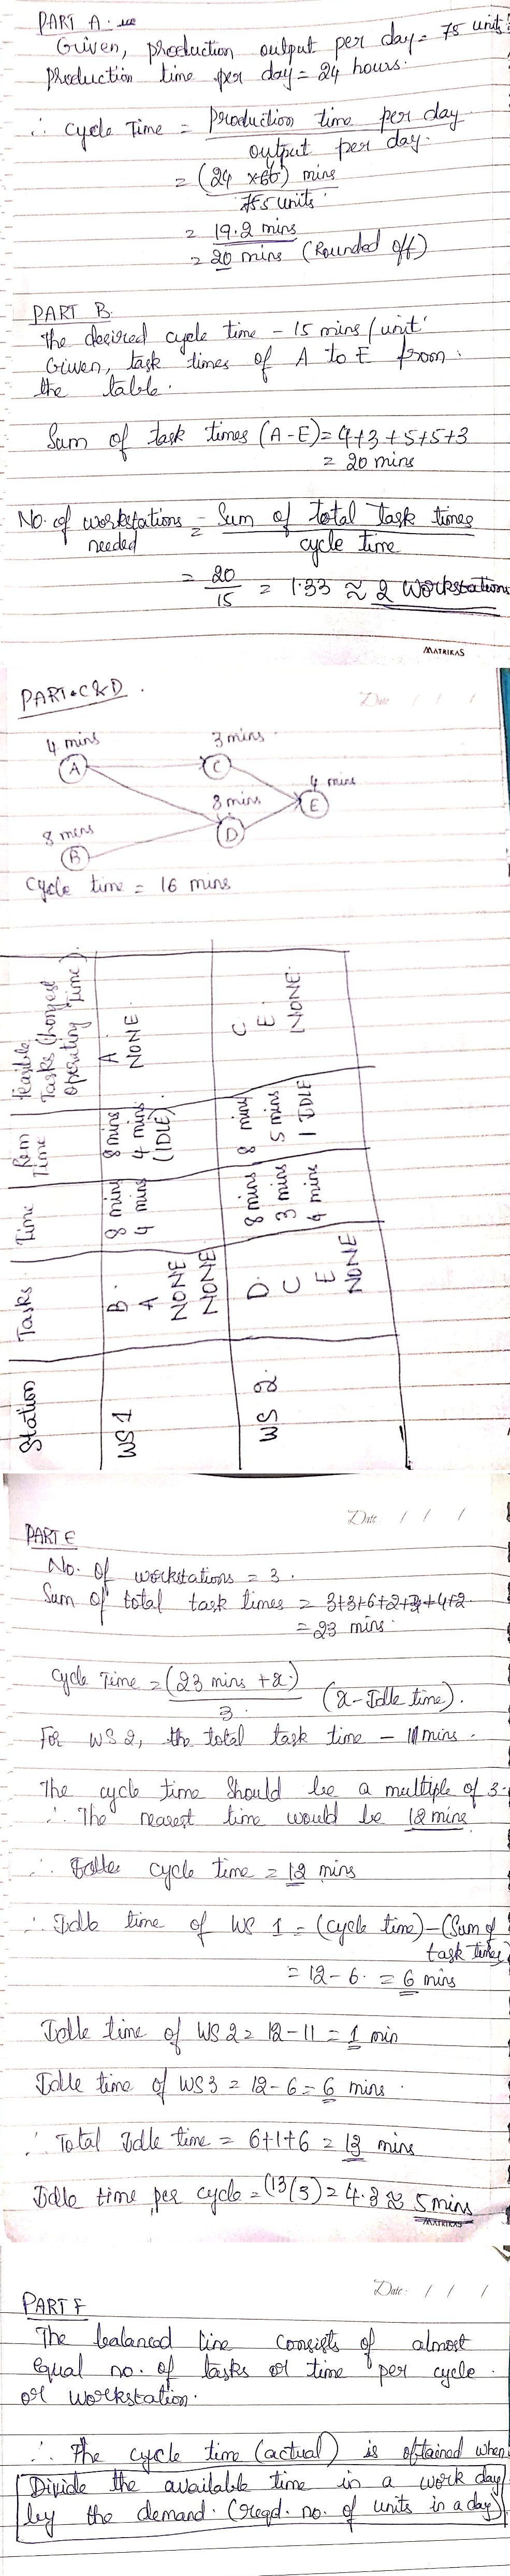 PART A:
Given, production output per day = 75 units
production time per day = 24 hours.
∴ Cycle Time = Production time per day
output per day.
= (24 × 60) mins
75 units
= 19.2 mins
= 20 mins (Rounded off)
PART B.
The desired cycle time - 15 mins/unit
Given, task times of A to E from
the table.
Sum of task times (A-E) = 4+3+5+5+3
= 20 mins
No. of workstations needed = Sum of total task times
cycle time
= 20/15 = 1.33 ≈ 2 Workstations
MATRIKAS
PART C & D.
Date / / /
4 mins
3 mins
A
C
4 mins
8 mins
E
8 mins
D
B
Cycle time = 16 mins
Station | Tasks | Time | Rem Time | Feasible Tasks (Longest operating Time)
WS 1 | B | 8 mins | 8 mins | A
A | 4 mins | 4 mins (IDLE) | NONE
NONE
NONE
WS 2 | D | 8 mins | 8 mins | C
C | 3 mins | 5 mins | E
E | 4 mins | 1 IDLE | NONE
NONE
Date / / /
PART E
No. of workstations = 3.
Sum of total task times = 3+3+6+2+3+4+2
= 23 mins.
Cycle Time = (23 mins + x)
3
(x - Idle time).
For WS 2, the total task time - 11 mins.
The cycle time should be a multiple of 3.
∴ The nearest time would be 12 mins
∴ cycle time = 12 mins
∴ Idle time of WS 1 = (cycle time) - (Sum of
task times)
= 12 - 6 = 6 mins
Idle time of WS 2 = 12 - 11 = 1 min
Idle time of WS 3 = 12 - 6 = 6 mins.
∴ Total Idle time = 6+1+6 = 13 mins
Idle time per cycle = (13/3) = 4.3 ≈ 5 mins
MATRIKAS
Date: / / /
PART F
The balanced line consists of almost
equal no. of tasks or time per cycle
or workstation.
∴ The cycle time (actual) is obtained when
Divide the available time in a work day
by the demand. (reqd. no. of units in a day)